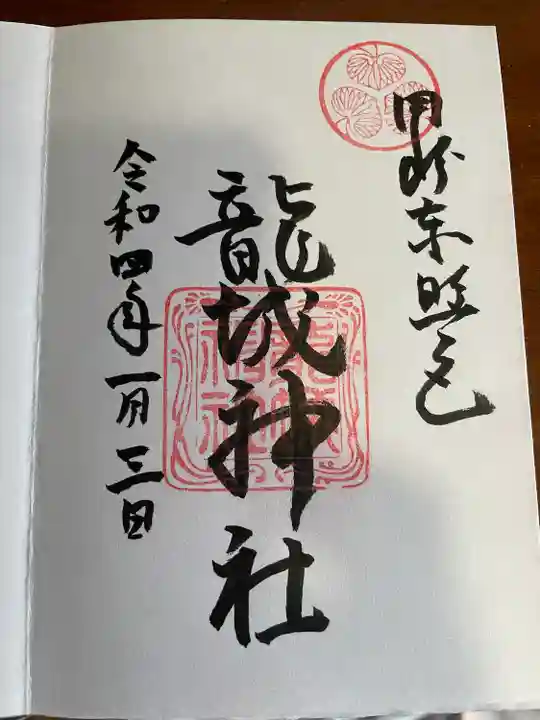 岡崎東照宮
龍城神社
令和四年一月三日
龍城
神社